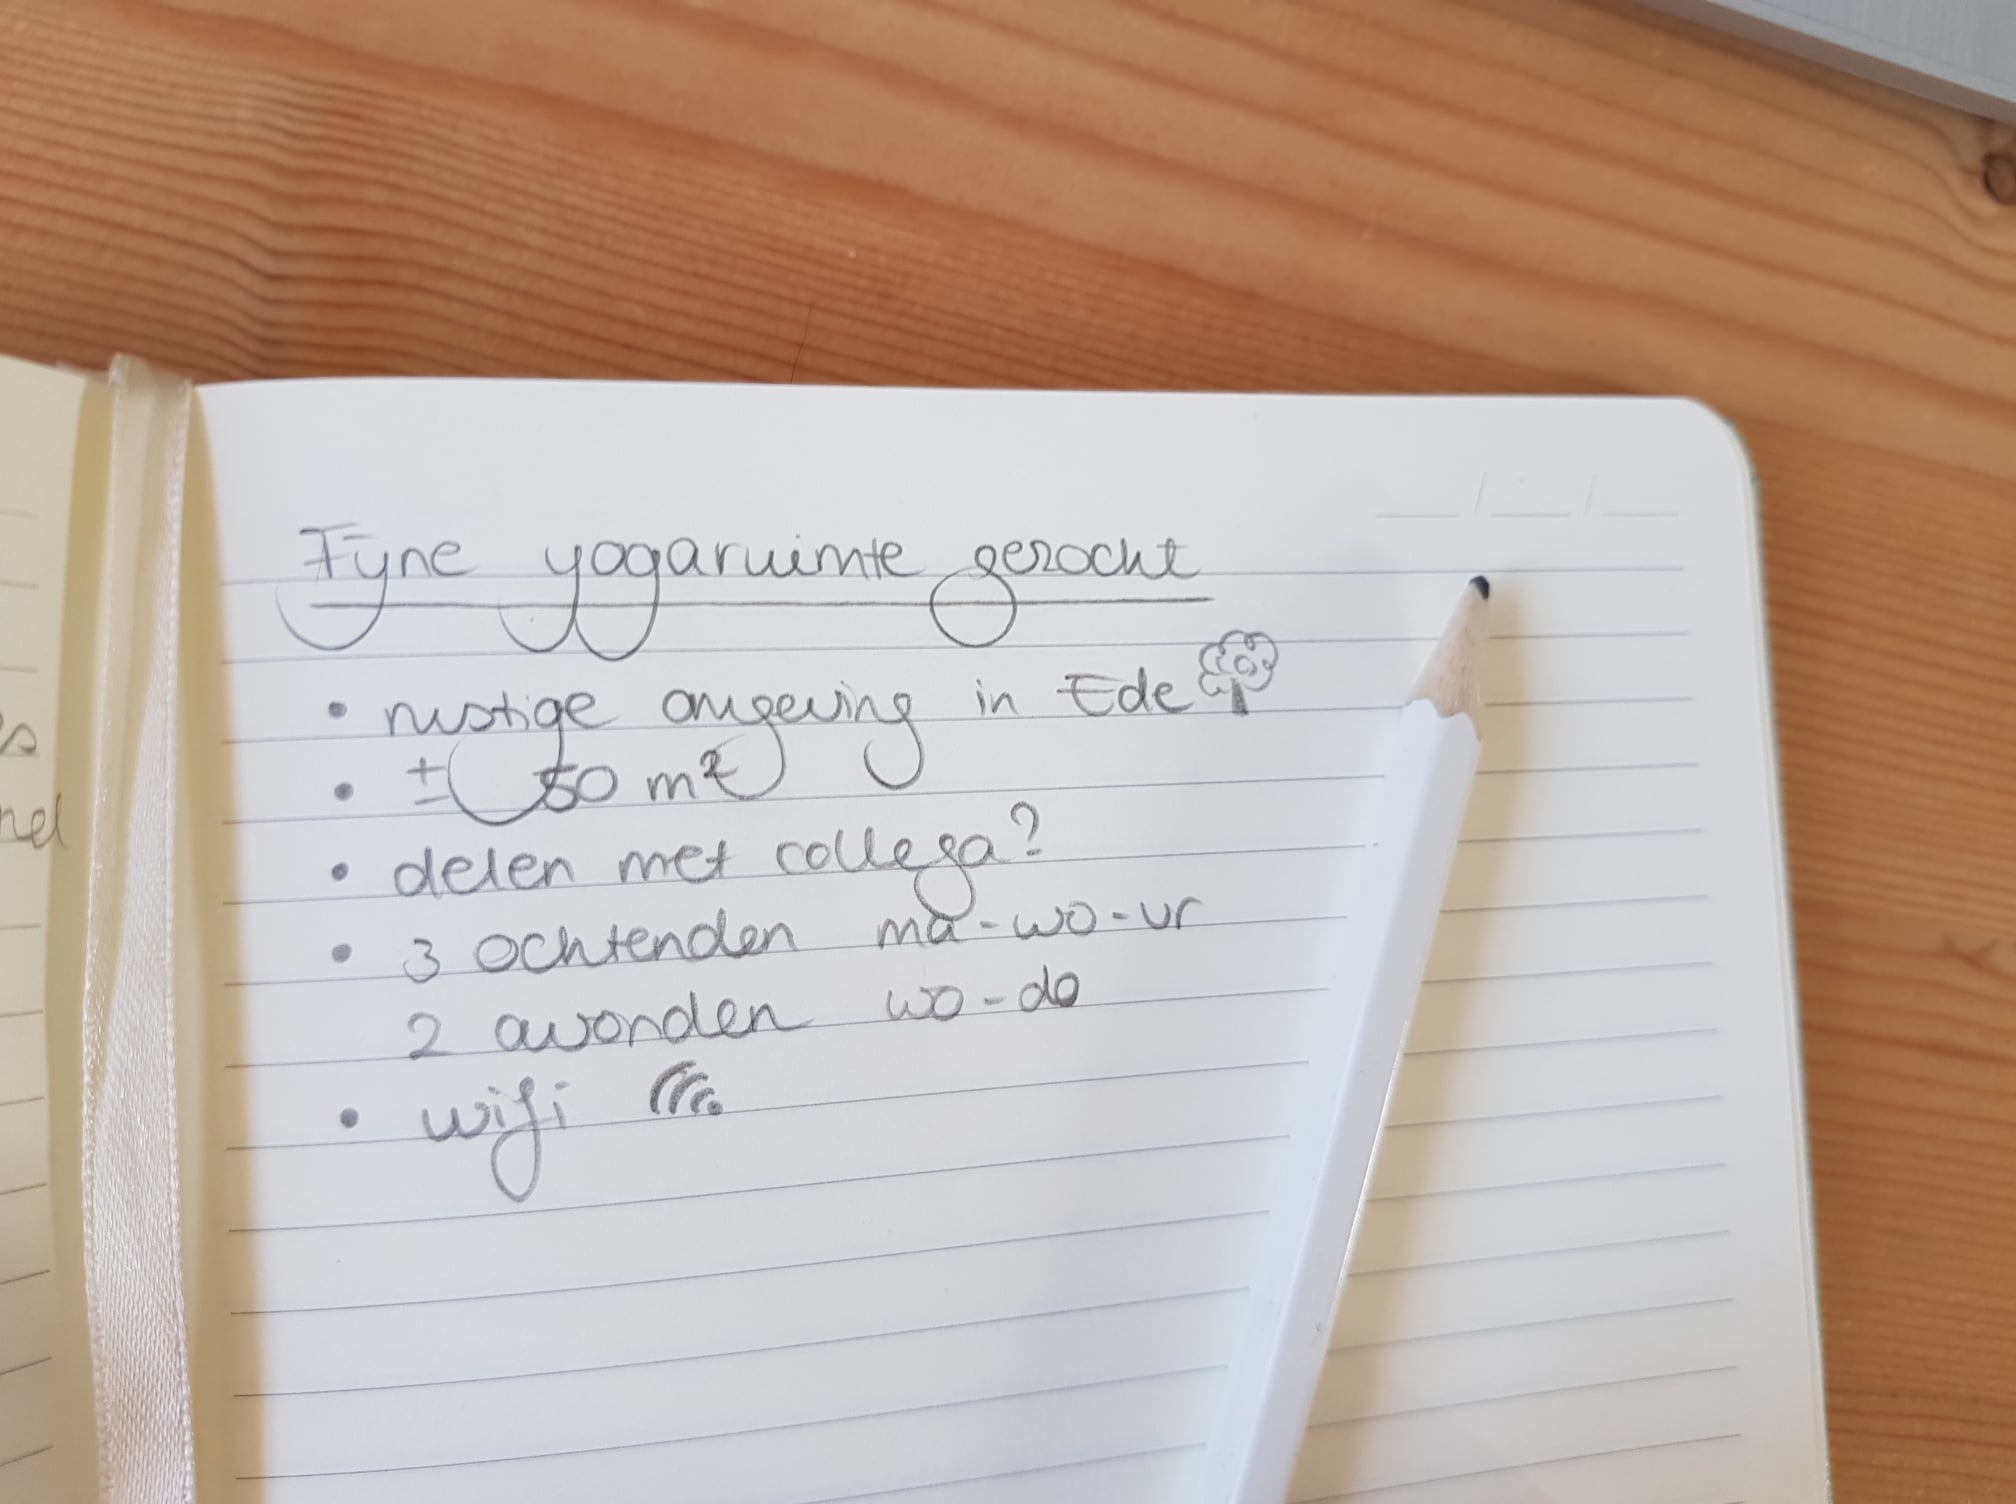 Fijne yogaruimte gezocht
• rustige omgeving in Ede
• ± 50 m²
• delen met collega?
• 3 ochtenden ma-wo-vr
2 avonden wo-do
• wifi